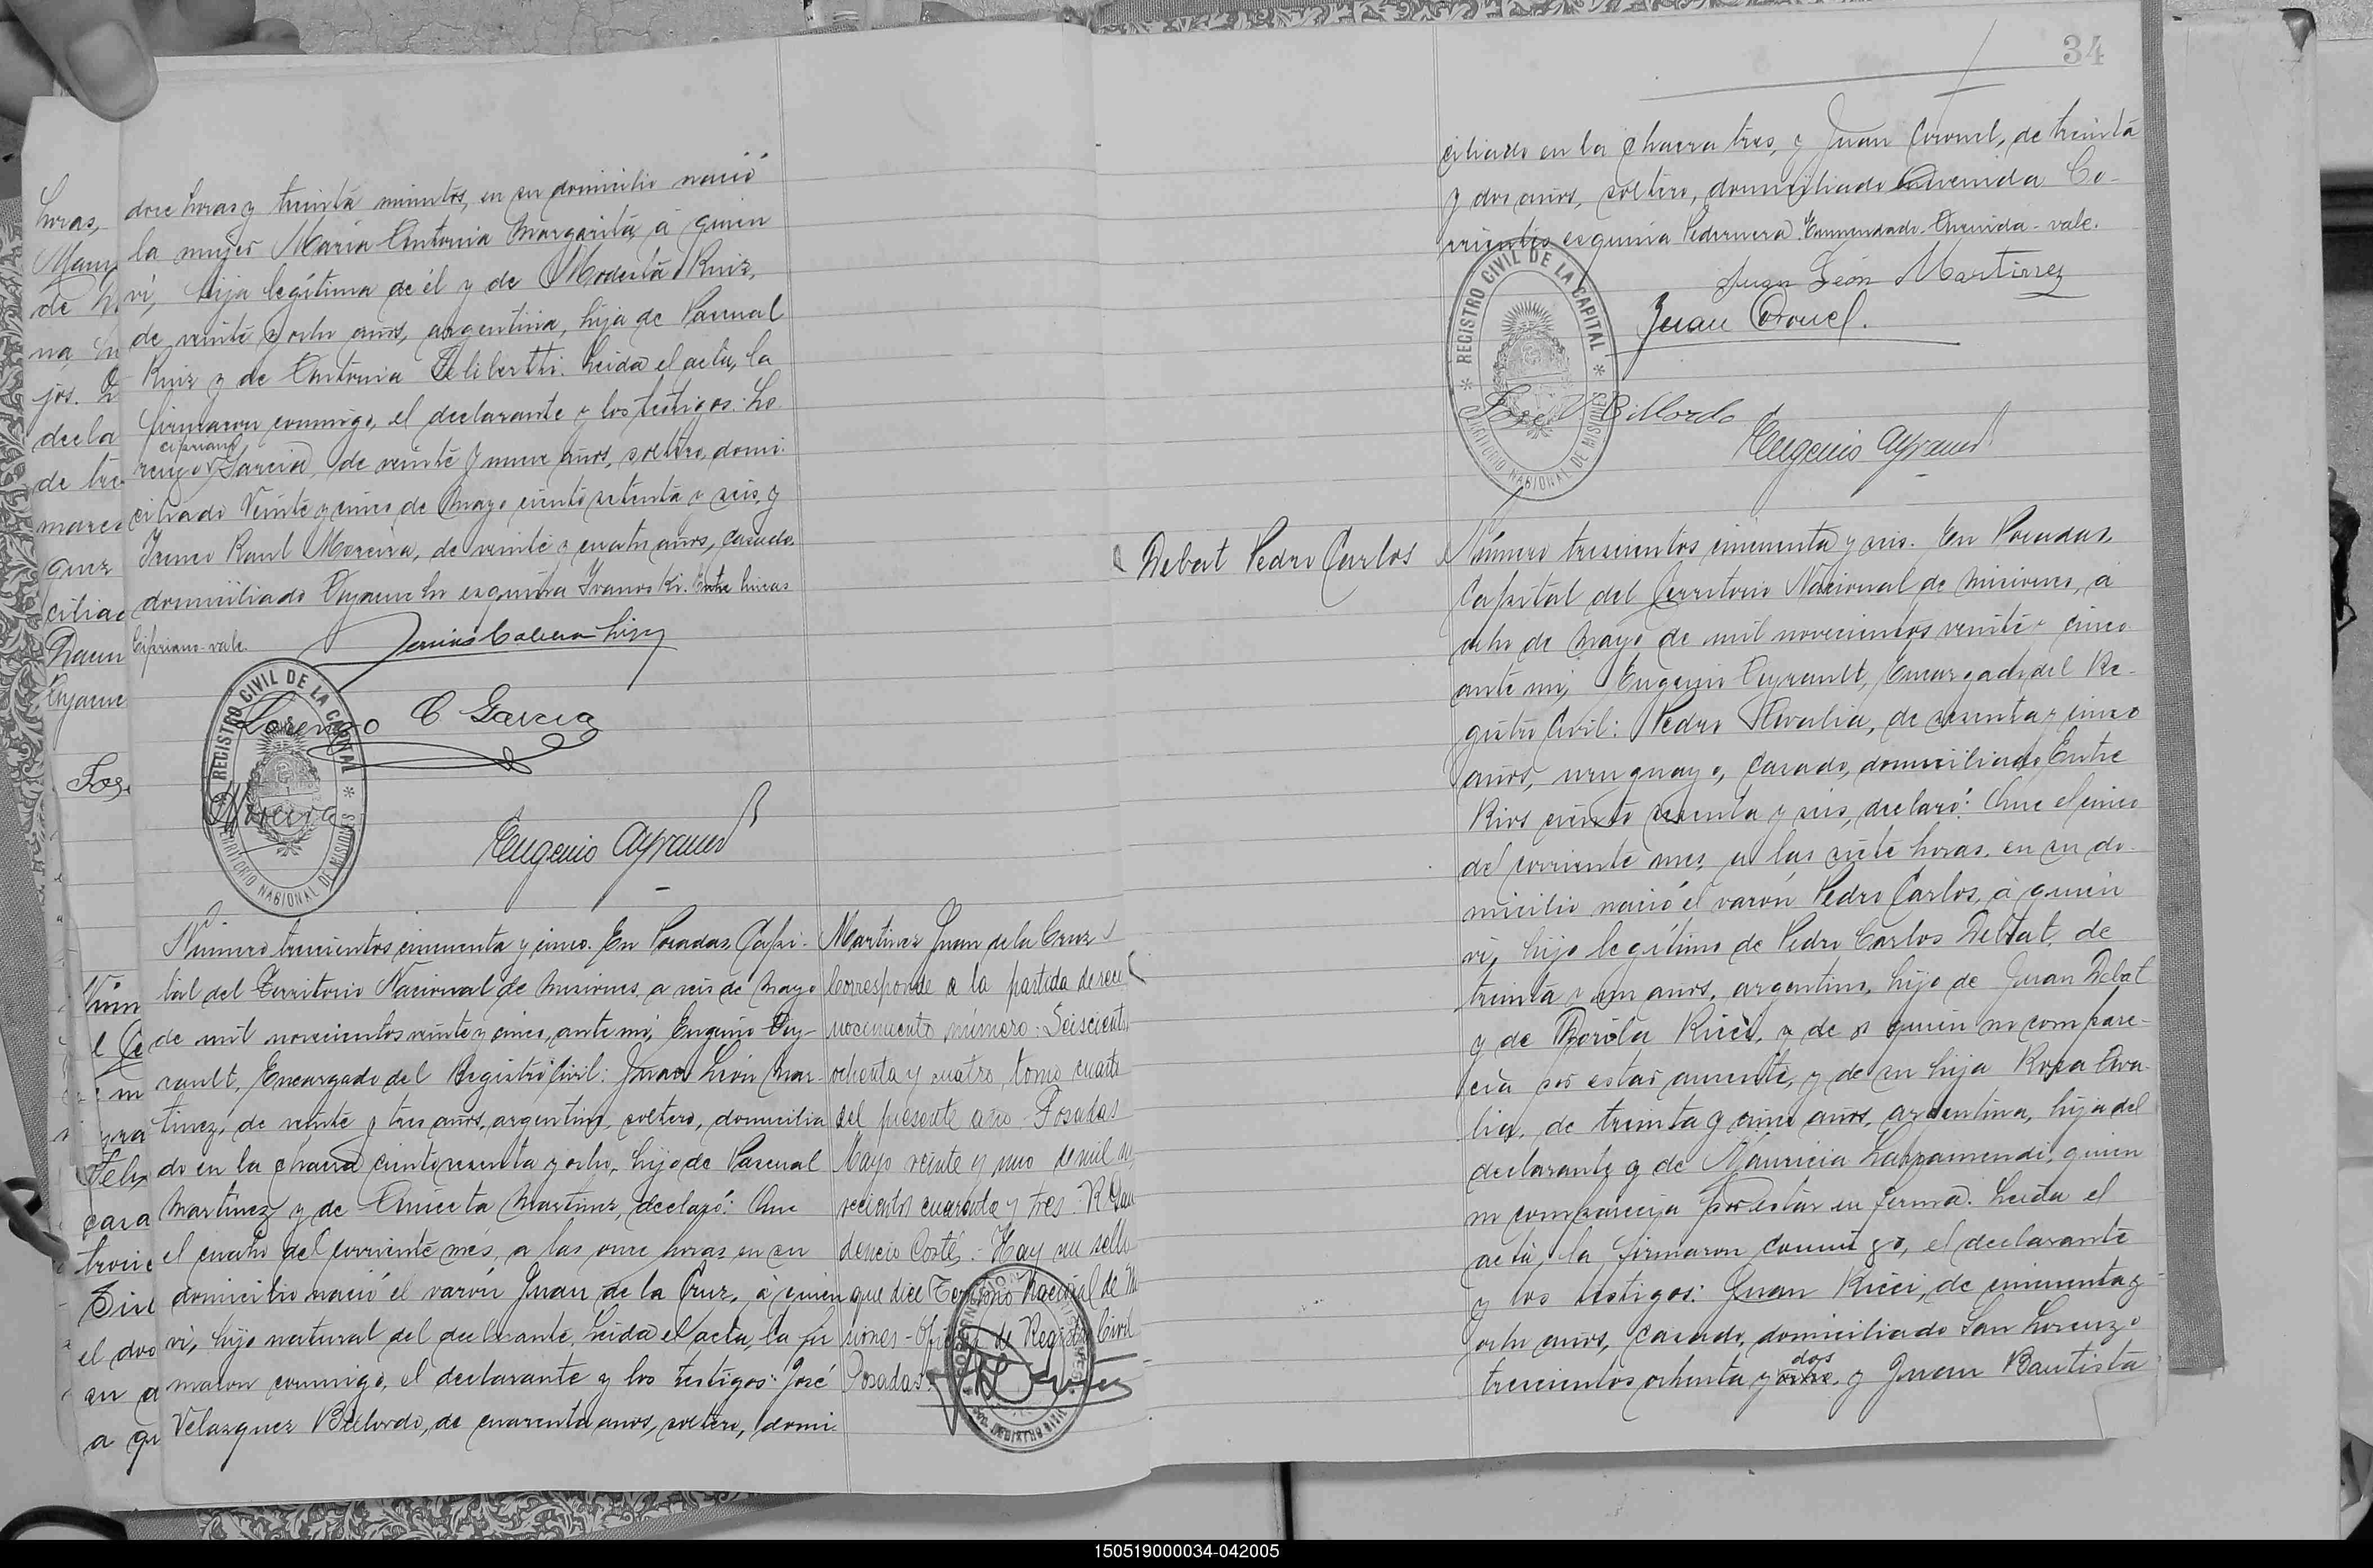 horas,
Man
de
na
jos.
decla
de tre
marc
quez
ciliac
Daen
Ayacu
doce horas y treinta minutos, en su domicilio nació
la mujer María Antonia Margarita, á quien
ví, hija legítima de él y de Modesta Ruiz,
de veinte y ocho años, argentina, hija de Pascual
Ruiz y de Antonia Alibertti. Leida el acta, la
firmaron conmigo, el declarante y los testigos: Lo
cipriano
renzo García, de veinte y nueve años, soltero, domi-
ciliado Veinte y cinco de Mayo ciento setenta y seis, y
Ireneo Raul Moreira, de veinte y cuatro años, casado,
domiciliado Ayacucho esquina Ivanoski. Entre lineas
Cipriano-vale.
REGISTRO CIVIL DE LA CAPITAL
TERRITORIO NACIONAL DE MISIONES
Lorenzo C Garcia
Moreira
Eugenio Ayrault
Número trescientos cincuenta y cinco. En Posadas, Capi-
tal del Territorio Nacional de Misiones, a seis de Mayo
de mil novecientos veinte y cinco, ante mi, Eugenio Ay-
rault, Encargado del Registro Civil: Juan León Mar-
tinez, de veinte y tres años, argentino, soltero, domicilia
do en la chacra ciento sesenta y ocho, hijo de Pascual
Martínez y de Aniceta Martinez, declaró: Que
el cuatro del corriente més, a las once horas, en su
domicilio nació el varón Juan de la Cruz, á quien
ví, hijo natural del declarante. Leida el acta, la fir
maron conmigo, el declarante y los testigos: José
Velasquez Billordo, de cuarenta años, soltero, domi-
Martinez Juan de la Cruz
Corresponde a la partida de reco
nocimiento número: Seiscientos
ochenta y cuatro, tomo cuarto
del presente año - Posadas
Mayo veinte y uno de mil no
vecientos cuarenta y tres. R. Gau
dencio Cortés.- Hay un sello
que dice Territorio Nacional de Mi
siones - Oficina de Registro Civil
Posadas.
34
ciliado en la chacra tres, y Juan Coronel, de treinta
y dos años, soltero, domiciliado Avenida Co-
rrientes esquina Pedernera. Enmendado-Avenida-vale.
Juan León Martinez
Juan Coronel.
REGISTRO CIVIL DE LA CAPITAL
TERRITORIO NACIONAL DE MISIONES
José V. Billordo
Eugenio Ayrault
Debat Pedro Carlos
Número trescientos cincuenta y seis. En Posadas,
Capital del Territorio Nacional de Misiones, a
ocho de Mayo de mil novecientos veinte y cinco
ante mi, Eugenio Ayrault, Encargado del Re-
gistro Civil: Pedro Avalia, de sesenta y cinco
años, uruguayo, casado, domiciliado Entre
Rios ciento sesenta y seis, declaró: Que el cinco
del corriente mes, a las siete horas, en su do-
micilio nació el varón Pedro Carlos, á quien
ví, hijo legítimo de Pedro Carlos Debat, de
treinta y un años, argentino, hijo de Juan Debat
y de Dorila Ricci, y de quien no compare-
cía por estar ausente, y de su hija Rosa Ava-
lia, de treinta y cinco años, argentina, hija del
declarante y de Mauricia Larramendi, quien
no comparecía por estar enferma. Leida el
acta, la firmaron conmigo, el declarante
y los testigos: Juan Ricci, de cincuenta y
ocho años, casado, domiciliado San Lorenzo
dos
trescientos ochenta y ocho, y Juan Bautista
150519000034-042005